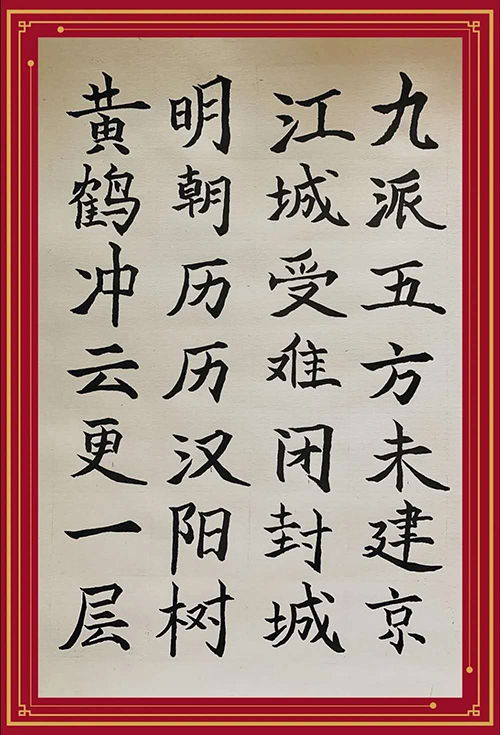 九派五方未建京
江城受难闭封城
明朝历历汉阳树
黄鹤冲云更一层